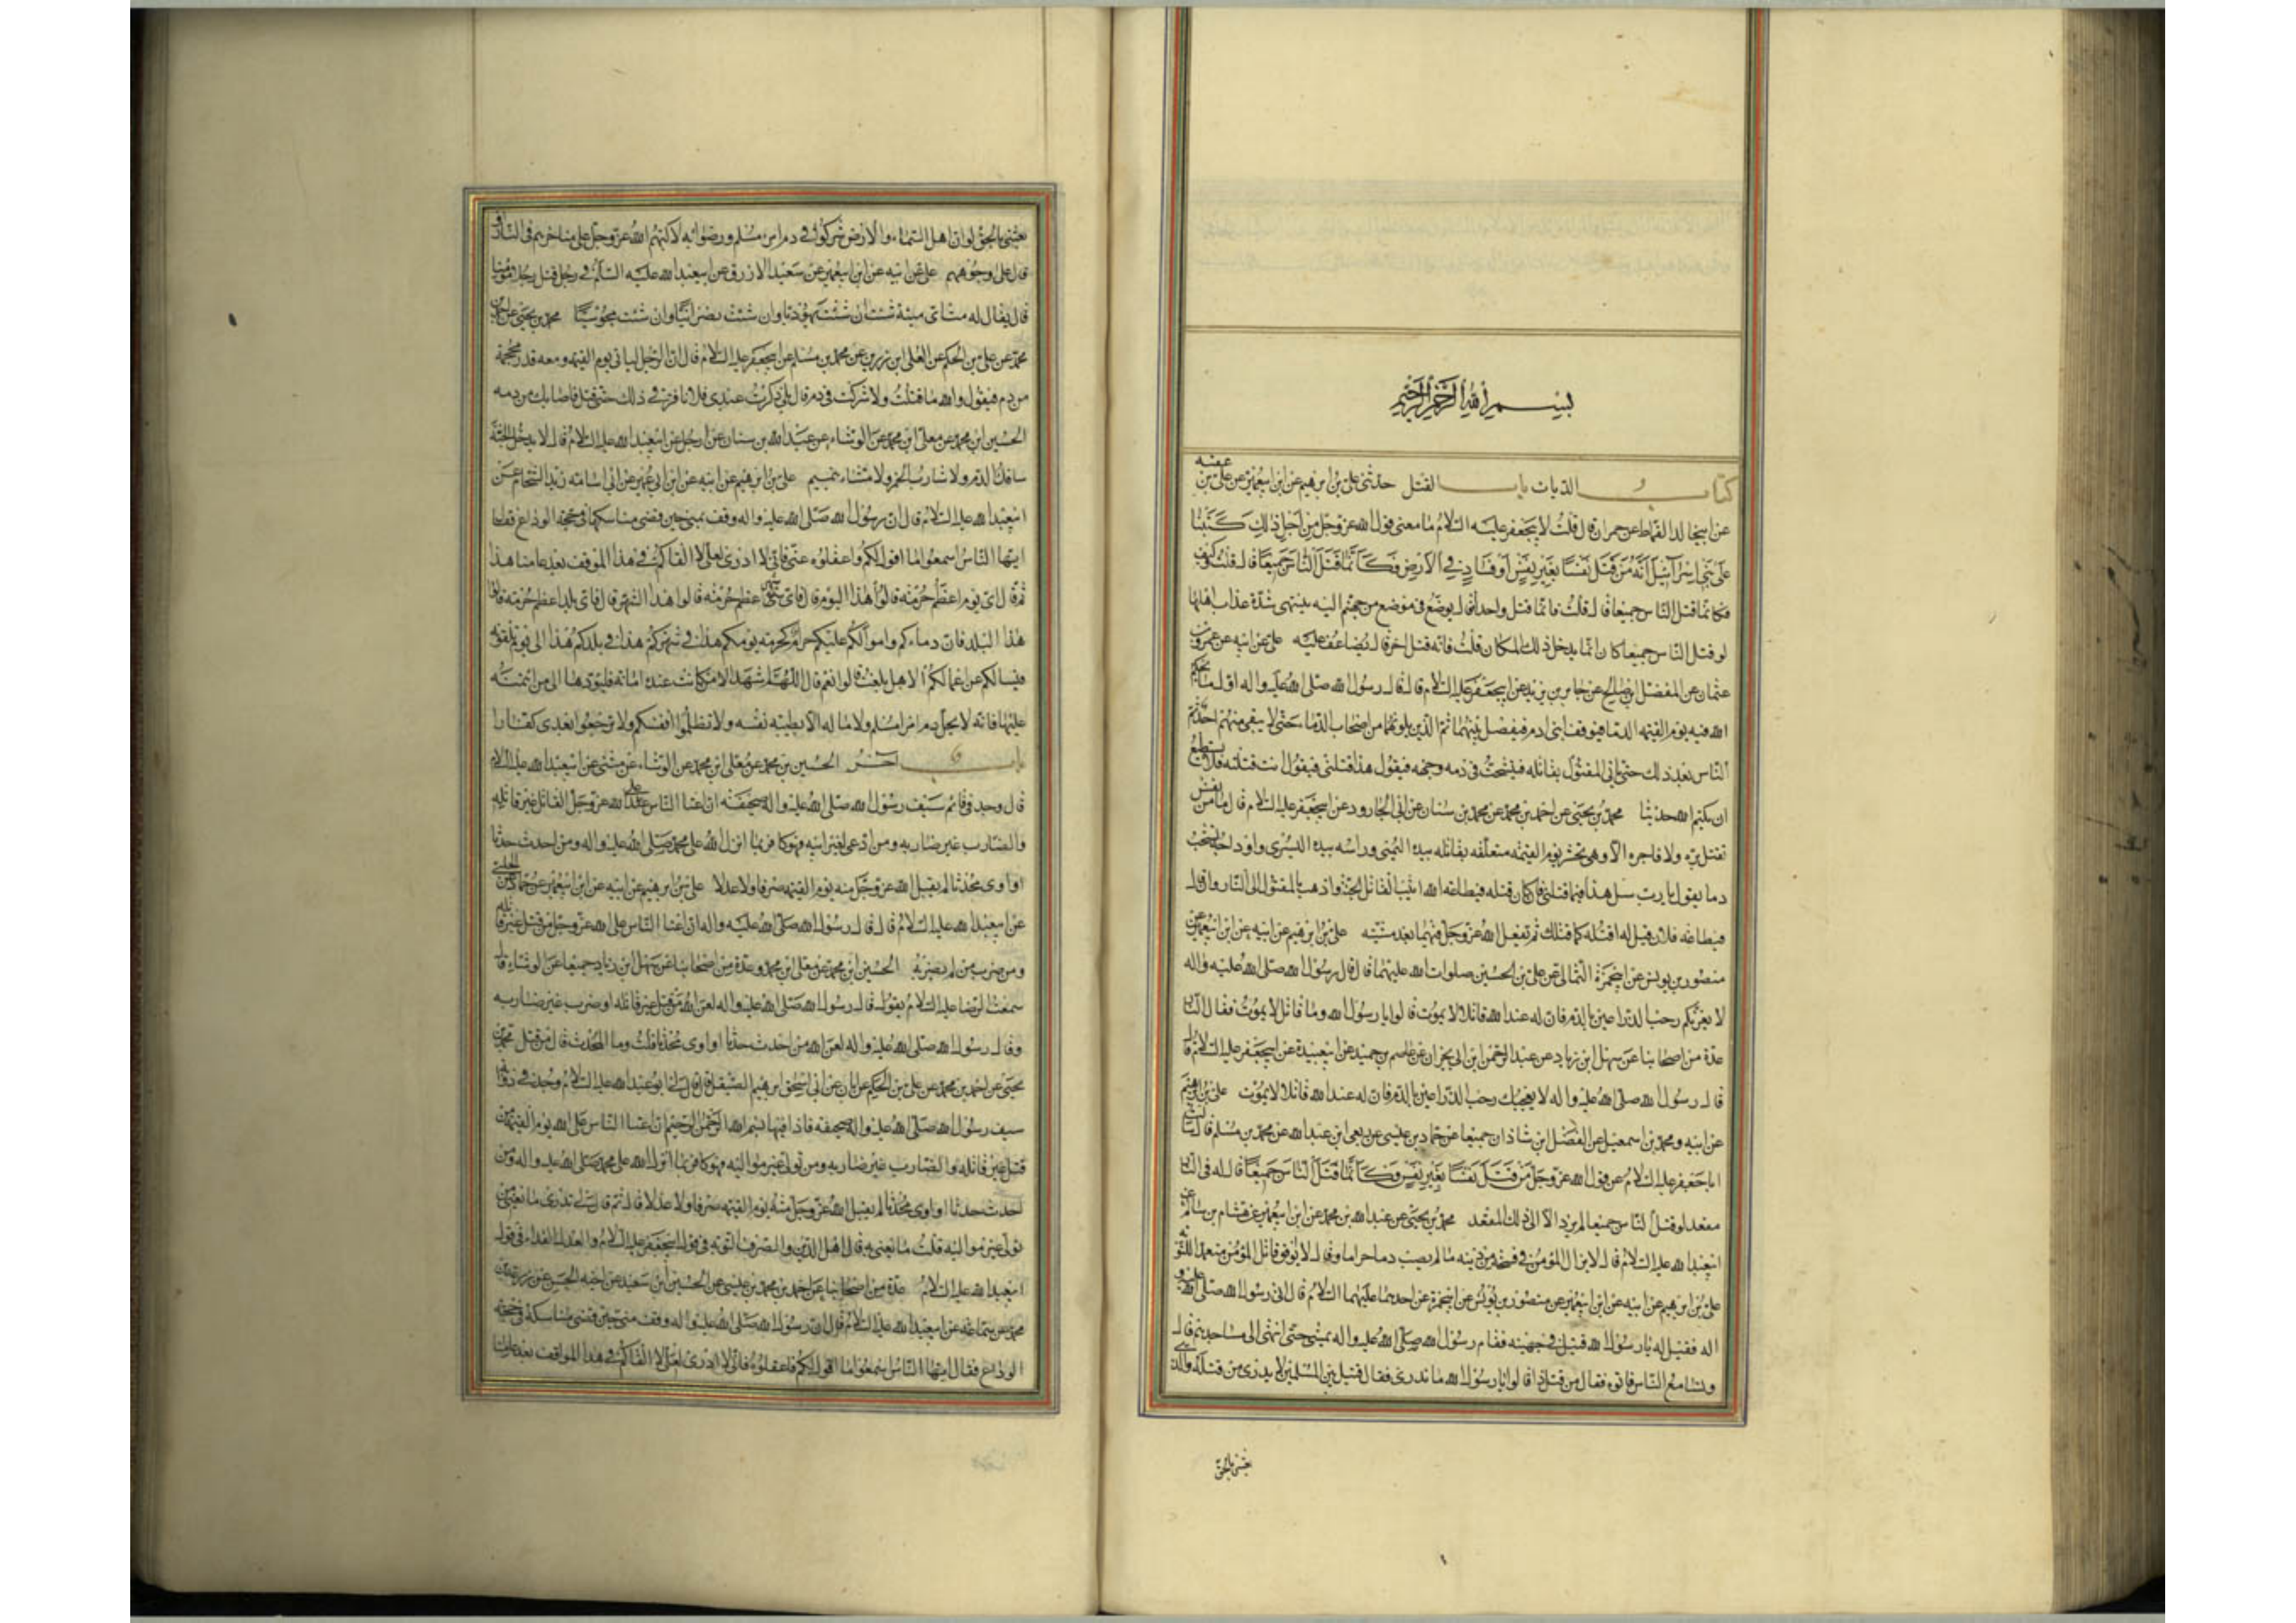 بسم الله الرحمن الرحيم
كتاب الديات باب القتل حدثني علي بن ابرهيم عن ابن ابيعمير عن علي بن عقبه
عن ابيخالد القماط عن حمران قال قلت لابيجعفر عليه السلام ما معنى قول الله عز وجل من اجل ذلك كتبنا
على بني اسرآئيل انه من قتل نفسا بغير نفس او فساد في الارض فكانما قتل الناس جميعا قال قلت وكيف
فكانما قتل الناس جميعا قال قلت فانما قتل واحدا قال يوضع في موضع من جهنم اليه ينتهى شدة عذاب اهلها
لو قتل الناس جميعا كان انما يدخل ذلك المكان قلت فانه قتل اخر قال يضاعف عليه علي عن ابيه عن عمرو بن
عثمان عن المفضل ابن صالح عن جابر بن يزيد عن ابيجعفر عليه السلام قال قال رسول الله صلى الله عليه واله اول ما يحكم
الله فيه يوم القيمه الدما فيوقف ابنى ادم فيفصل بينهما ثم الذين يلونهما من اصحاب الدماء حتى لا يبقى منهم احد ثم
الناس بعد ذلك حتى ياتى المقتول بقاتله فيتشحت في دمه وجهه فيقول هذا قتلنى فيقول انت قتلته فلا يستطيع
ان يكتم الله حديثا محمد بن يحيى عن احمد بن محمد عن محمد بن سنان عن ابي الجارود عن ابيجعفر عليه السلام قال ما من نفس
تقتل بره ولا فاجره الا وهي تحشر يوم القيمه متعلقه بقاتله بيده اليمنى وراسه بيده اليسرى واوداجه تشخب
دما يقول يا رب سل هذا فيما قتلنى فان كان قتله في طاعه الله اثيب القاتل الجنة واذهب بالمقتول الى النار وان قال
في طاعه فلان قيل له اقتله كما قتلك ثم يفعل الله عز وجل فيهما بعد مشيته علي بن ابرهيم عن ابيه عن ابن ابيعمير عن
منصور بن يونس عن ابيحمزة الثمالى عن علي بن الحسين صلوات الله عليهما قال قال رسول الله صلى الله عليه واله
لا يغرنكم رحب الذراعين بالدم فان له عند الله قاتلا لا يموت قالوا يا رسول الله وما قاتل لا يموت فقال النار
عدة من اصحابنا عن سهل ابن زياد عن عبد الرحمن ابن ابى نجران عن عاصم بن حميد عن ابيعبيدة عن ابيجعفر عليه السلام قال
قال رسول الله صلى الله عليه واله لا يعجبك رحب الذراعين بالدم فان له عند الله قاتلا لا يموت علي بن ابرهيم
عن ابيه ومحمد بن اسمعيل عن الفضل ابن شاذان جميعا عن حماد بن عيسى عن ربعى ابن عبد الله عن محمد بن مسلم قال سالت
ابا جعفر عليه السلام عن قول الله عز وجل من قتل نفسا بغير نفس فكانما قتل الناس جميعا قال له في النار
مقعد لو قتل الناس جميعا لم يرد الا الى ذلك المقعد محمد بن يحيى عن عبد الله بن محمد عن ابن ابيعمير عن هشام بن سالم عن
ابيعبد الله عليه السلام قال لا يزال المؤمن في فسحه من دينه ما لم يصب دما حراما وقال لا يوفق قاتل المؤمن متعمدا للتوبه
علي بن ابرهيم عن ابيه عن ابن ابيعمير عن منصور بن يونس عن ابيحمزة عن احدهما عليهما السلام قال اتى رسول الله صلى الله عليه و
اله فقيل له يا رسول الله قتيل في جهينه فقام رسول الله صلى الله عليه واله يمشي حتى انتهى الى مساجدهم قال
وتسامع الناس فاتوه فقال من قتل ذا قالوا يا رسول الله ما ندرى فقال قتيل بين المسلمين لا يدرى من قتله والذى
بعثنى بالحق
بعثنى بالحق لو ان اهل السماء والارض شركوا في دم امرء مسلم ورضوا به لاكبهم الله عز وجل على مناخرهم في النار او
قال على وجوههم علي عن ابيه عن ابن ابيعمير عن سعيد الازرق عن ابيعبد الله عليه السلام في رجل قتل رجلا مؤمنا
قال يقال له مت اى ميتة شئت ان شئت يهوديا وان شئت نصرانيا وان شئت مجوسيا محمد بن يحيى عن احمد بن
محمد عن علي بن الحكم عن العلى ابن رزين عن محمد بن مسلم عن ابيجعفر عليه السلام قال ان الرجل لياتى يوم القيمه ومعه قدر محجمة
من دم فيقول والله ما قتلت ولا شركت في دم قال بلى ذكرت عبدى فلانا فرقى ذلك حتى قتل فاصابك من دمه
الحسين ابن محمد عن معلى ابن محمد عن الوشاء عن عبد الله بن سنان عن رجل عن ابيعبد الله عليه السلام قال لا يدخل الجنة
سافك الدم ولا شارب الخمر ولا مشاء بنميم علي بن ابرهيم عن ابيه عن ابن ابى عمير عن ابي اسامه زيد الشحام عن
ابيعبد الله عليه السلام قال ان رسول الله صلى الله عليه واله وقف بمنى حين قضى مناسكها في حجة الوداع فقال
ايها الناس اسمعوا ما اقول لكم واعقلوه عنى فانى لا ادرى لعلى لا القاكم في هذا الموقف بعد عامنا هذا
ثم قال اى يوم اعظم حرمة قالوا هذا اليوم قال فاى شهر اعظم حرمه قالوا هذا الشهر قال فاى بلد اعظم حرمه قالوا
هذا البلد فان دماءكم واموالكم عليكم حرام كحرمه يومكم هذا في شهركم هذا في بلدكم هذا الى يوم تلقونه
فيسالكم عن اعمالكم الا هل بلغت قالوا نعم قال اللهم اشهد الا من كانت عنده امانه فليؤدها الى من ائتمنه
عليها فانه لا يحل دم امرء مسلم ولا ماله الا بطيبه نفسه ولا تظلموا انفسكم ولا ترجعوا بعدى كفارا
باب آخر الحسين بن محمد عن معلى ابن محمد عن الوشاء عن مثنى عن ابيعبد الله عليه السلام
قال وجد في قائم سيف رسول الله صلى الله عليه واله صحيفه ان اعتا الناس على الله عز وجل القاتل غير قاتله
والضارب غير ضاربه ومن ادعى لغير ابيه فهو كافر بما انزل الله على محمد صلى الله عليه واله ومن احدث حدثا
او اوى محدثا لم يقبل الله عز وجل منه يوم القيمه صرفا ولا عدلا علي بن ابرهيم عن ابيه عن ابن ابيعمير عن حماد عن الحلبى
عن ابيعبد الله عليه السلام قال قال رسول الله صلى الله عليه واله ان اعتا الناس على الله عز وجل من قتل غير قاتله
ومن ضرب من لم يضربه الحسين ابن محمد عن معلى ابن محمد وعدة من اصحابنا عن سهل ابن زياد جميعا عن الوشاء قال
سمعت الرضا عليه السلام يقول قال رسول الله صلى الله عليه واله لعن الله من قتل غير قاتله او ضرب غير ضاربه
وقال رسول الله صلى الله عليه واله لعن الله من احدث حدثا او اوى محدثا قلت وما المحدث قال من قتل محمد بن
يحيى عن احمد بن محمد عن علي بن الحكم عن ابان عن ابي اسحق ابرهيم الصيقل قال قال لى ابو عبد الله عليه السلام وجد في ذوابه
سيف رسول الله صلى الله عليه واله صحيفه فاذا فيها بسم الله الرحمن الرحيم ان اعتا الناس على الله يوم القيمه من
قتل غير قاتله والضارب غير ضاربه ومن تولى غير مواليه فهو كافر بما انزل الله على محمد صلى الله عليه واله ومن
احدث حدثا او اوى محدثا لم يقبل الله عز وجل منه يوم القيمه صرفا ولا عدلا قال ثم قال لى تدرى ما يعنى من
تولى غير مواليه قلت ما يعنى به قال اهل الدين والصرف التوبه في قول ابيجعفر عليه السلام والعدل الفداء في قول
ابيعبد الله عليه السلام عدة من اصحابنا عن احمد بن محمد بن عيسى عن الحسين ابن سعيد عن اخيه الحسن عن زرعه بن
محمد عن سماعه عن ابيعبد الله عليه السلام قال ان رسول الله صلى الله عليه واله وقف بمنى حين قضى مناسكه في حجة
الوداع فقال ايها الناس اسمعوا ما اقول لكم فاعقلوه فانى لا ادرى لعلى لا القاكم في هذا الموقف بعد عامنا